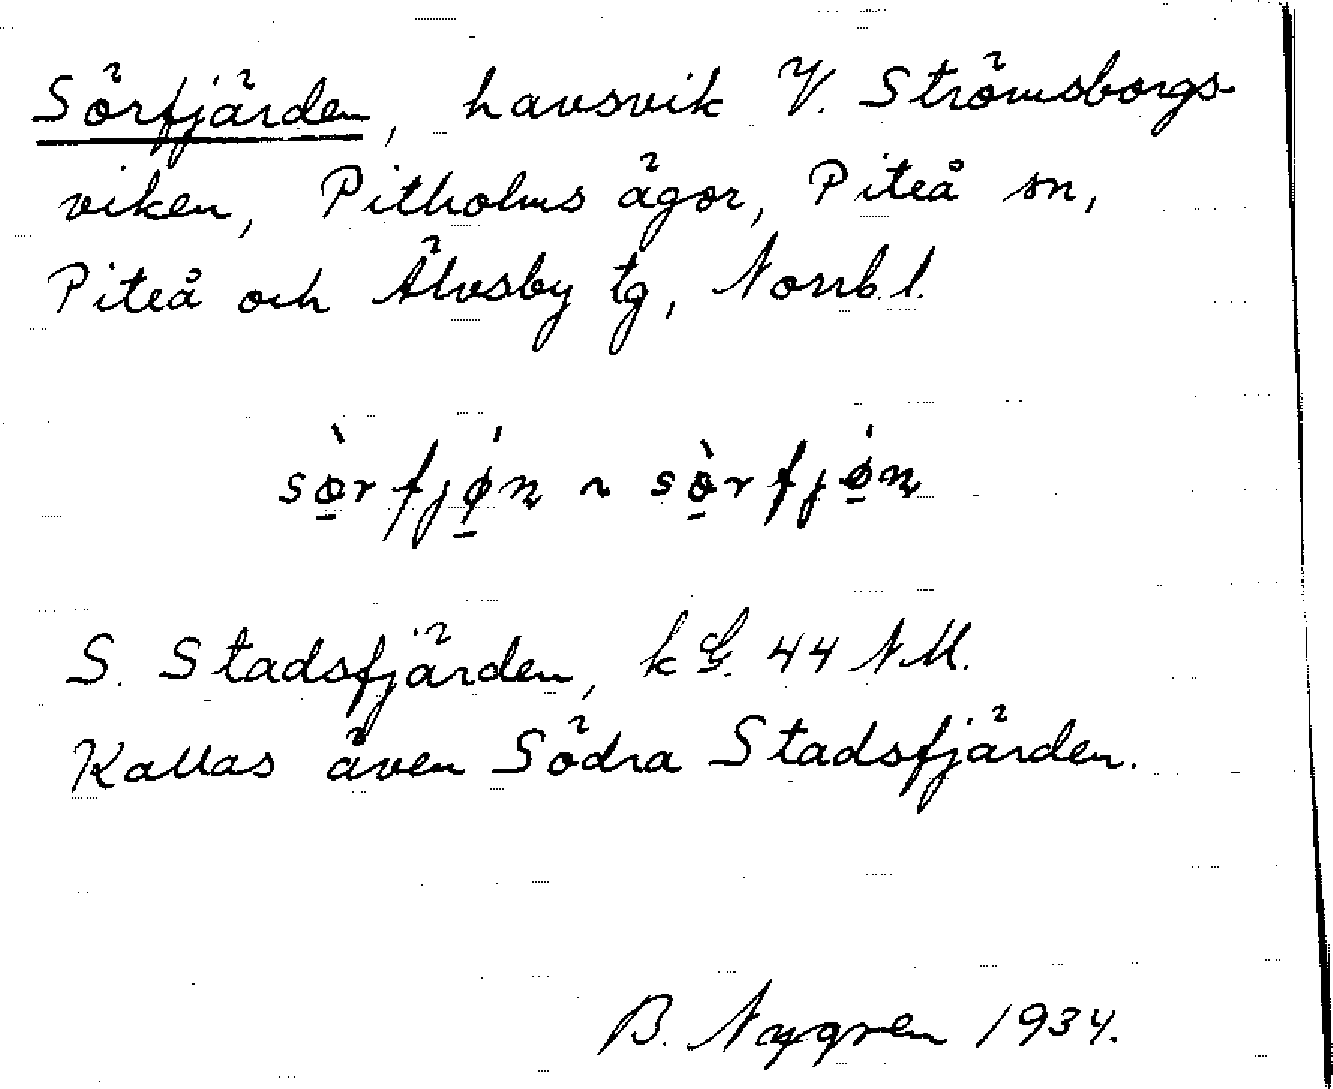 Sörfjärden, havsvik V. Strömsborgs-
viken, Pitholms ägor, Piteå sn,
Piteå och Älvsby tg, Norrb. l.
sö̀rfjǿn ~ sö̀rfjǿn
S. Stadsfjärden, k G. 44 N.M.
Kallas även Södra Stadsfjärden.
B. Nygren 1934.